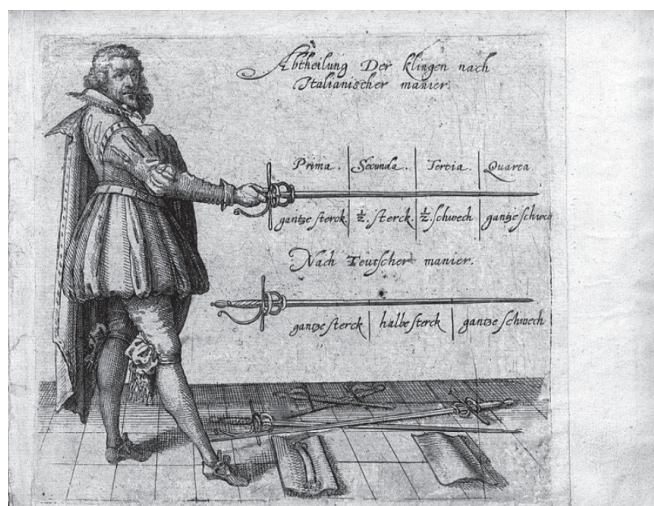 Abtheilung Der klingen nach
Italianischer manier.
Prima. Secunda. Tertia. Quarta
gantze sterck ½. sterck ½ schwech gantze schwec
Nach Teutscher manier.
gantze sterck halbe sterck gantze schwech